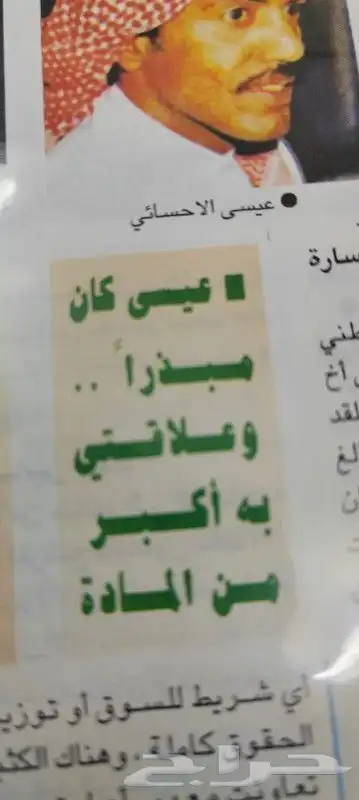 ● عيسى الاحسائي
■ عيسى كان
مبذراً ..
وعلاقتي
به أكبر
من المادة
سارة
طني
أخ
لقد
لغ
أي شريط للسوق أو توزيع
الحقوق كاملة. وهناك الكثي
تعاونت
حراج